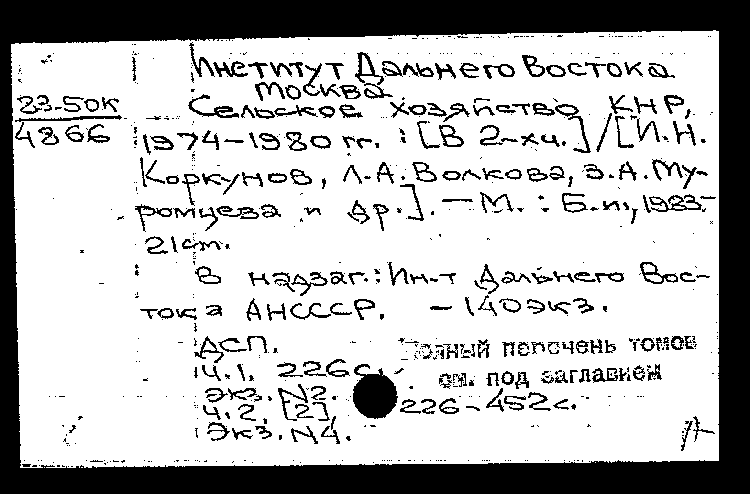 Институт Дальнего Востока
Москва
23-50к
4866
Сельское хозяйство КНР,
1974-1980 гг. : [В 2-хч.] / [И.Н.
Коркунов, Л.А. Волкова, З.А. Му-
ромцева и др.]. — М. : Б.и., 1983.-
21см.
В надзаг.: Ин-т Дальнего Вос-
тока АНСССР. - 140экз.
ДСП.
Полный перечень томов
см. под заглавием
Ч.1. 226с.
Экз. N2.
Ч.2. [2], 226-452с.
Экз. N4.